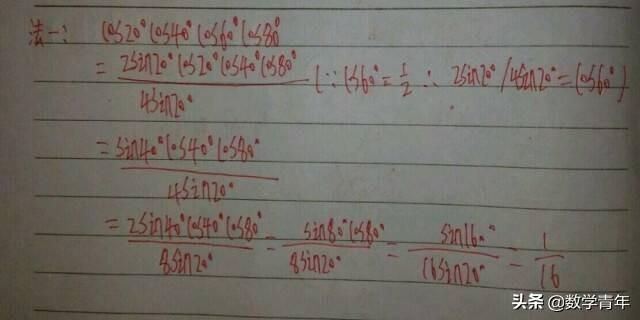 法一： cos20°cos40°cos60°cos80°
= 2sin20°cos20°cos40°cos80° / 4sin20° (∵cos60°=1/2 ∴ 2sin20°/4sin20°=cos60°)
= sin40°cos40°cos80° / 4sin20°
= 2sin40°cos40°cos80° / 8sin20° = sin80°cos80° / 8sin20° = sin160° / 16sin20° = 1/16
头条 @数学青年